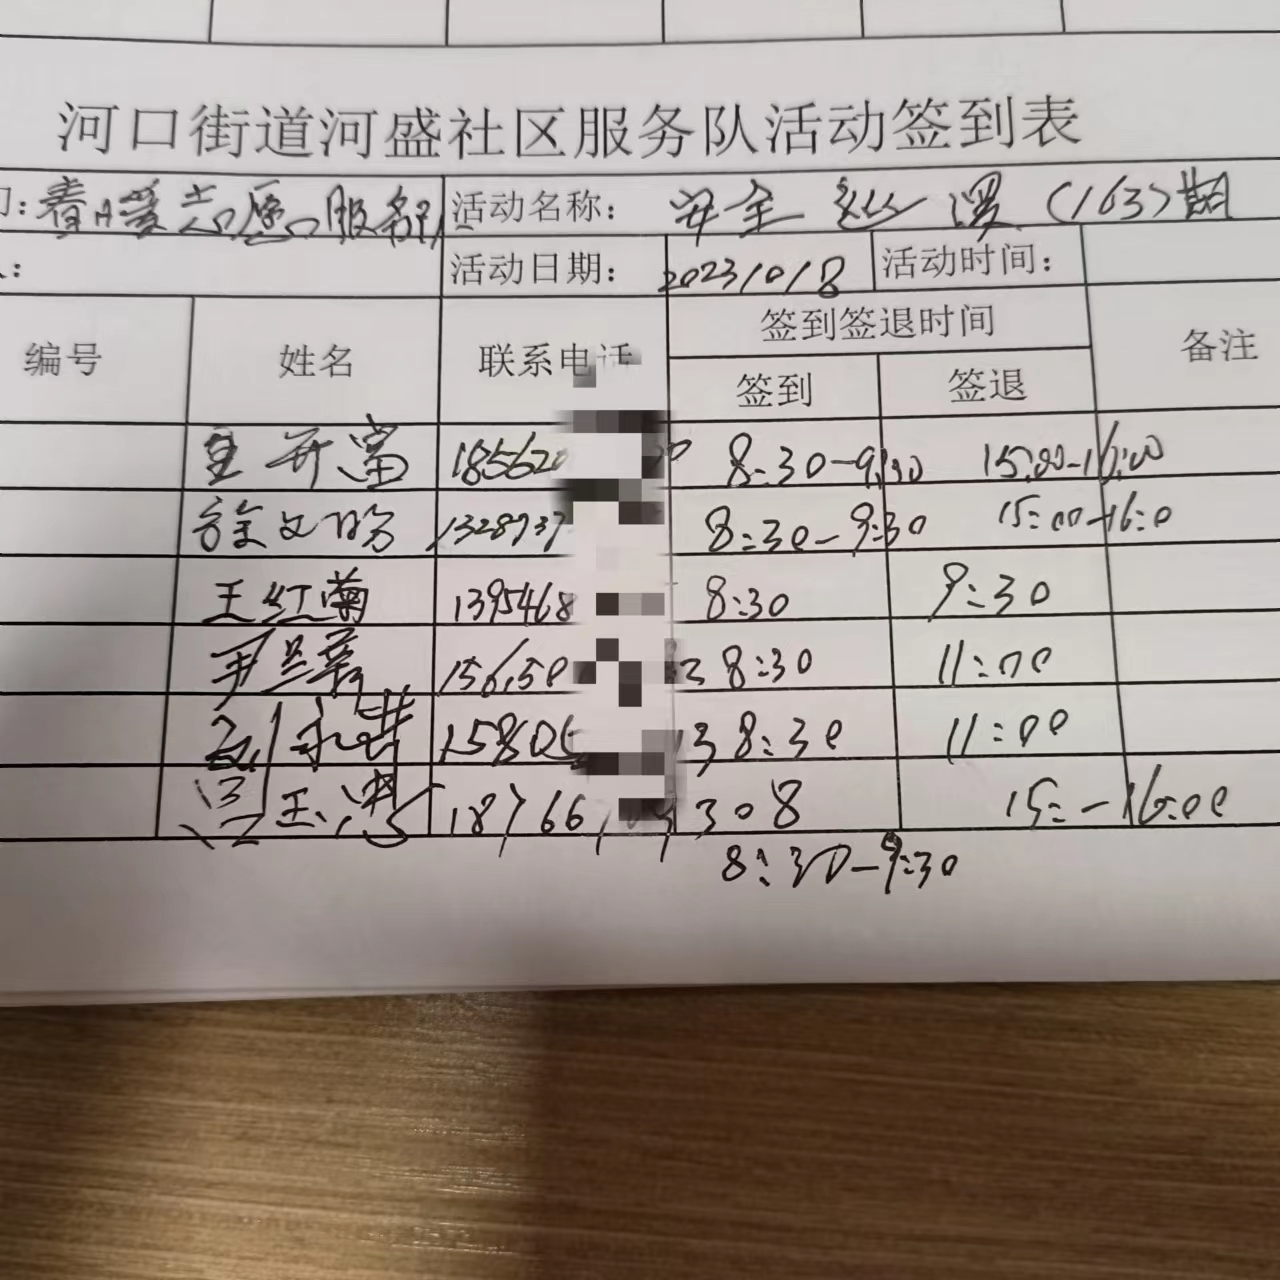 河口街道河盛社区服务队活动签到表
春暖志愿服务队 活动名称： 安全巡逻（163）期
活动日期： 20231018 活动时间：
编号 姓名 联系电话 签到签退时间 备注
签到 签退
王开富 185620 8:30-9:30 15:00-16:00
徐文明 1328937 8:30-9:30 15:00-16:0
王红菊 1395468 8:30 9:30
15650 8:30 11:00
刘永 15805 3 8:30 11:00
玉 18766 308 15:-16:00
8:30-9:30